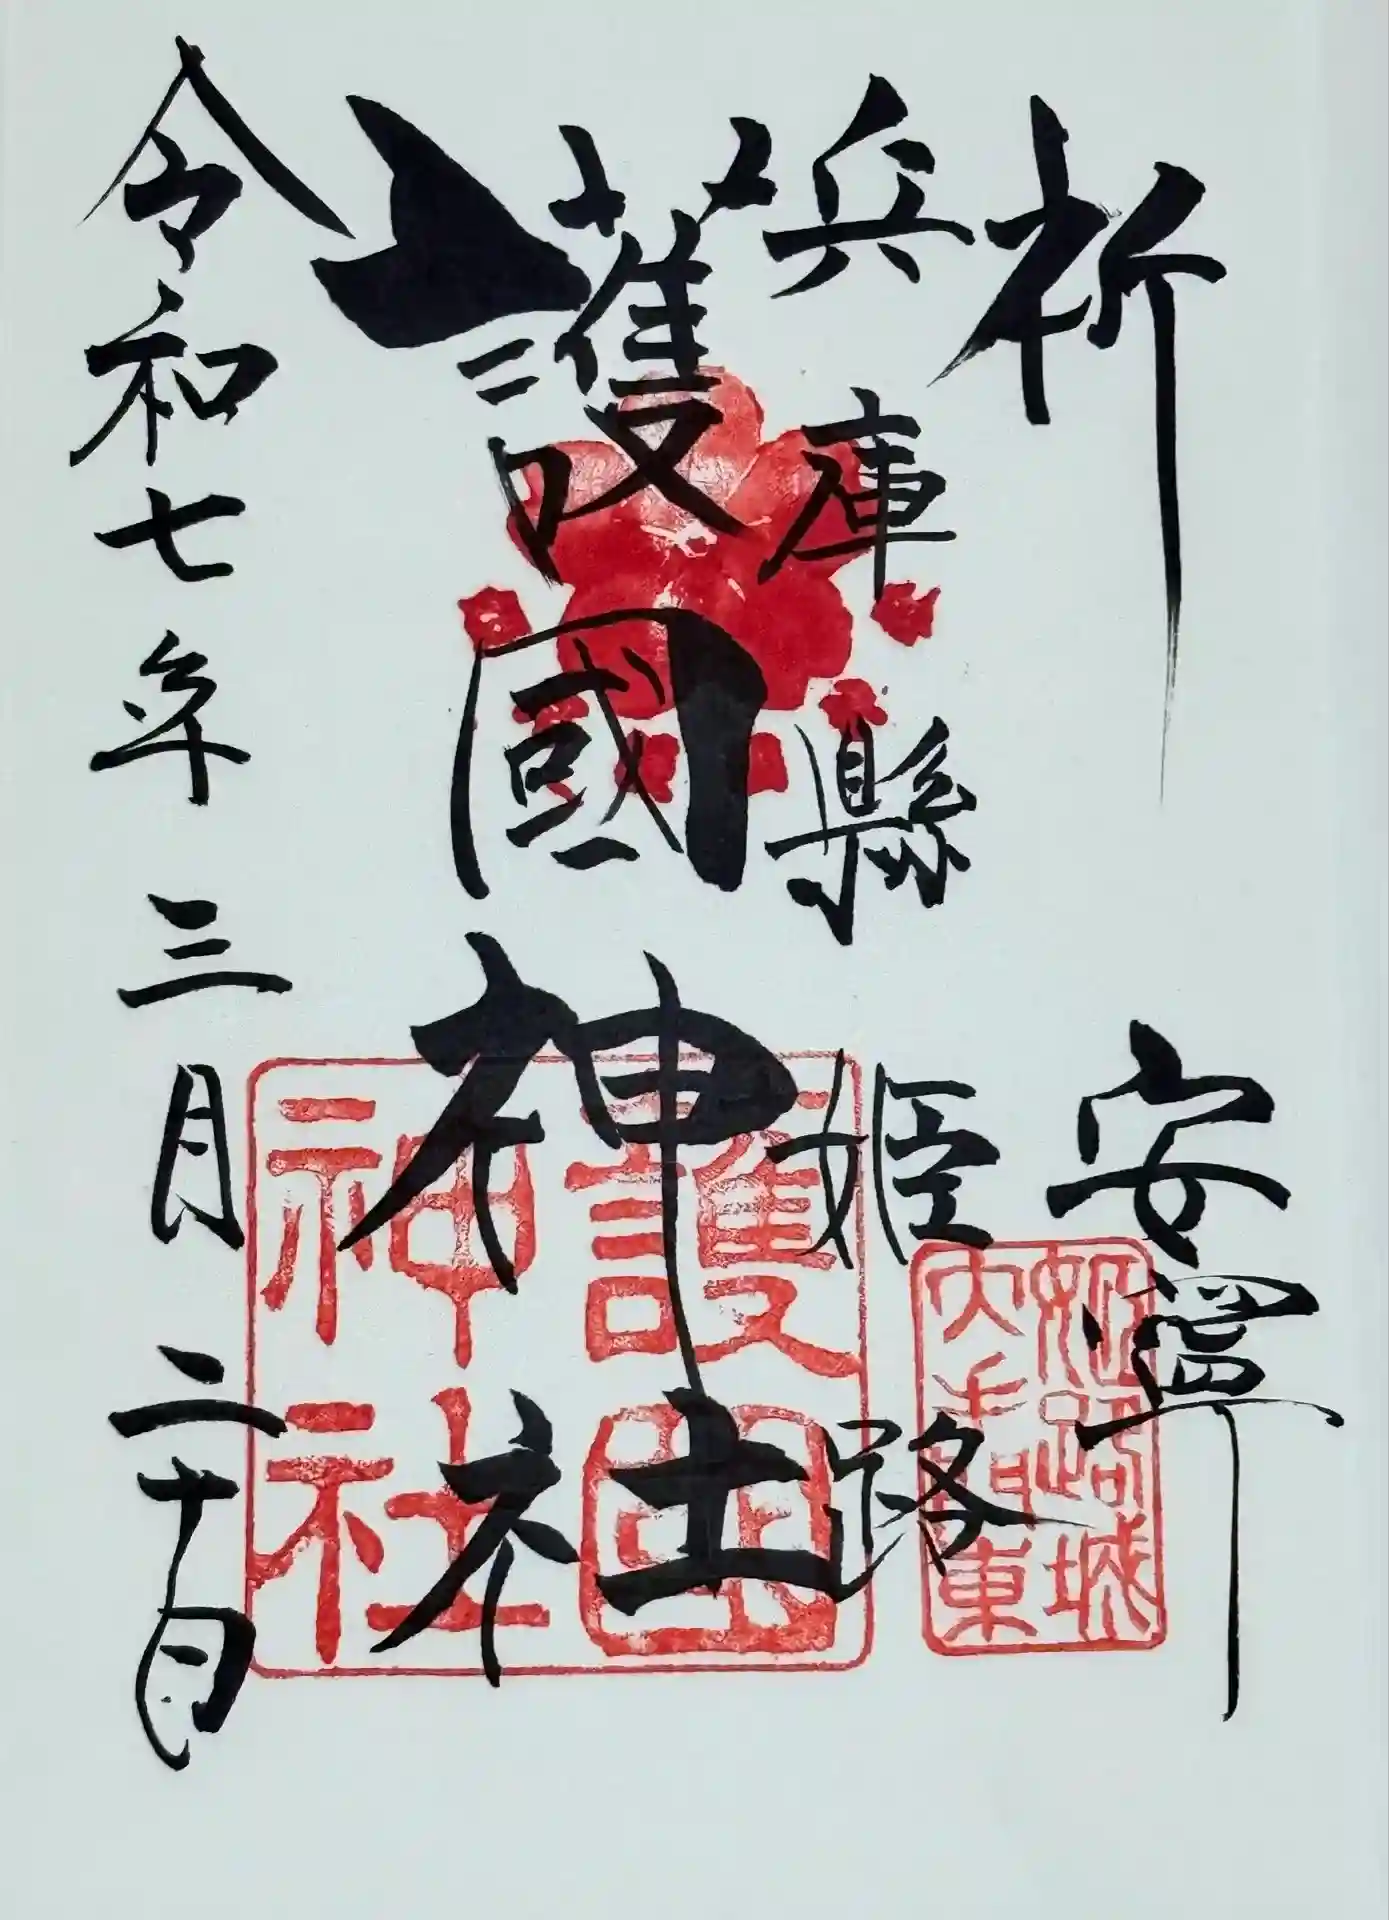 祈 安寧
兵庫縣姫路
護國神社
令和七年三月二十日
護國
神社
姫路城
大手前東